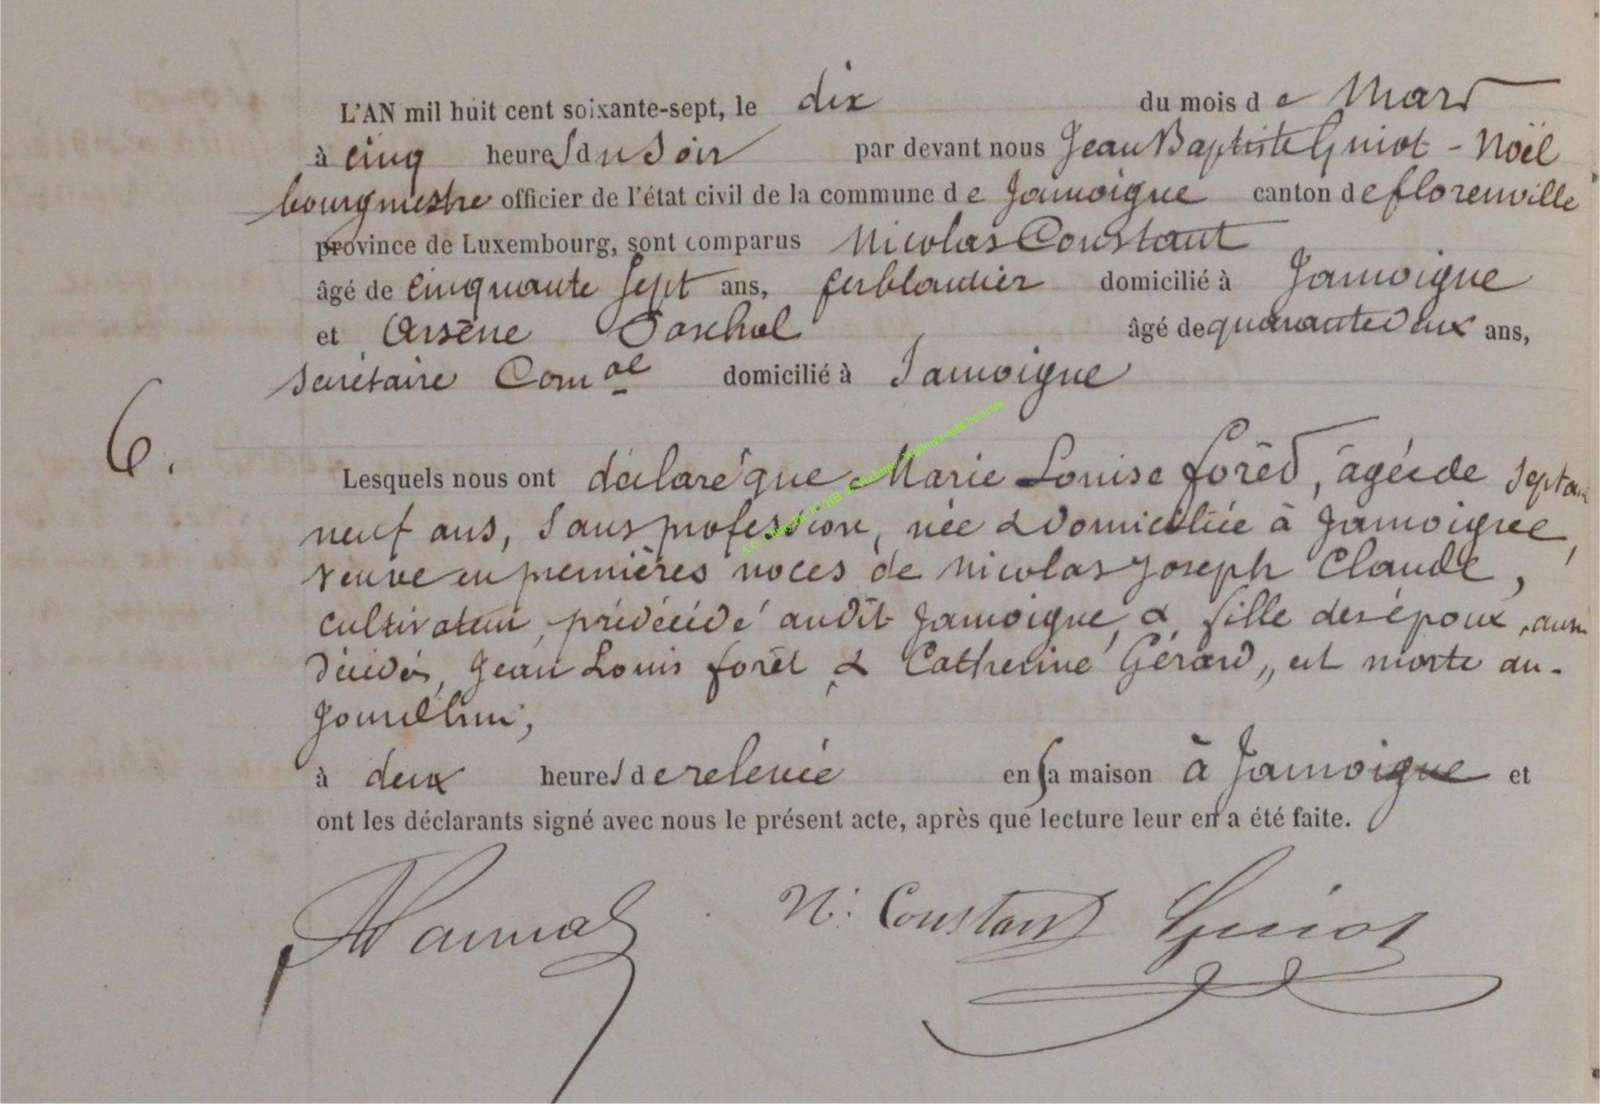 L'AN mil huit cent soixante-sept, le dix du mois de Mars
à cinq heures du Soir par devant nous Jean Baptiste Guiot - Noël
bourgmestre officier de l'état civil de la commune de Jamoigne canton de florenville
province de Luxembourg, sont comparus Nicolas Constant
âgé de cinquante sept ans, ferblantier domicilié à Jamoigne
et Arsène âgé de quarante deux ans,
secrétaire Comal domicilié à Jamoigne
6.
Lesquels nous ont déclaré que Marie Louise forêt, âgée de septante
neuf ans, sans profession, née & domiciliée à Jamoigne,
veuve en premières noces de Nicolas Joseph Claude,
cultivateur, prédécédé audit Jamoigne, & fille des époux, aussi
décédés, Jean Louis forêt & Catherine Gérard, est morte au-
jourd'hui,
à deux heures de relevée en sa maison à Jamoigne et
ont les déclarants signé avec nous le présent acte, après que lecture leur en a été faite.
N. Constant Guiot